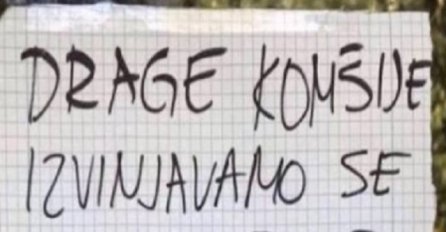 DRAGE KOMŠIJE
IZVINJAVAMO SE